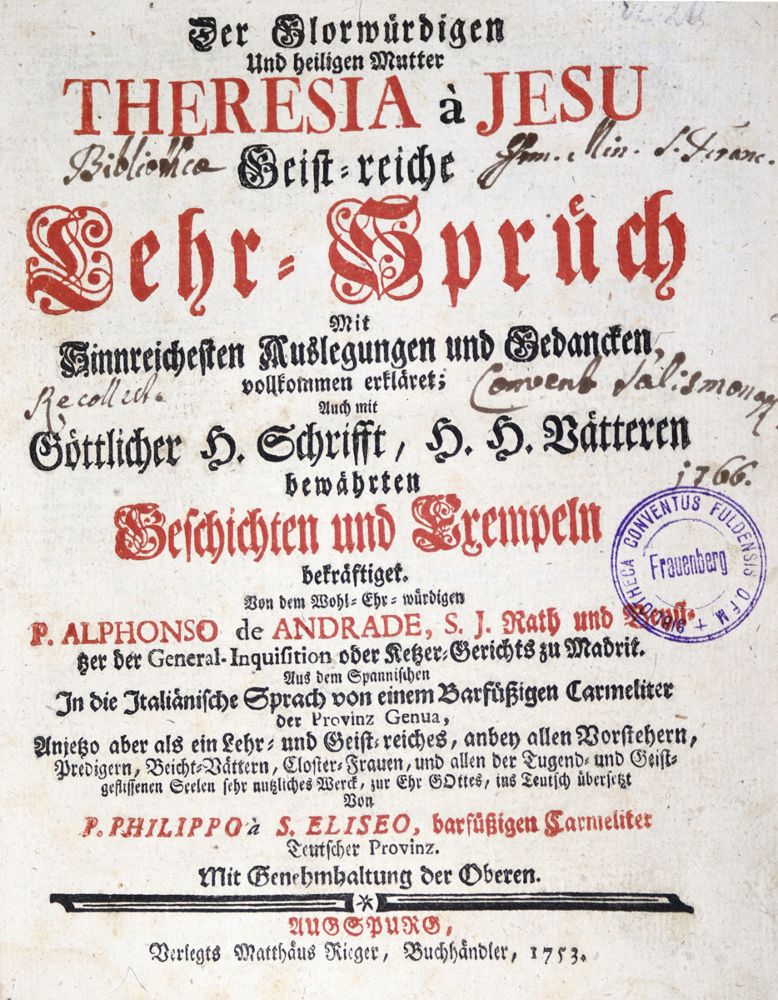 Der Glorwürdigen
Und heiligen Mutter
THERESIA à JESU
Bibliothecæ Geist-reiche Min. S. Franc.
Lehr-Sprüch
Mit
Sinnreichesten Auslegungen und Gedancken,
vollkommen erkläret;
Recollect. Convent Salismonast
Auch mit
Göttlicher H. Schrifft, H. H. Vätteren
bewährten
1766.
Geschichten und Exempeln
bekräftiget.
BIBLIOTHECA CONVENTUS FULDENSIS O.F.M. +
Frauenberg
Von dem Wohl-Ehr-würdigen
P. ALPHONSO de ANDRADE, S. J. Rath und Beysi-
tzer der General-Inquisition oder Ketzer-Gerichts zu Madrit.
Aus dem Spannischen
In die Italiänische Sprach von einem Barfüßigen Carmeliter
der Provinz Genua,
Anjetzo aber als ein Lehr- und Geist-reiches, anbey allen Vorstehern,
Predigern, Beicht-Vättern, Closter-Frauen, und allen der Tugend- und Geist-
geflissenen Seelen sehr nutzliches Werck, zur Ehr GOttes, ins Teutsch übersetzt
Von
P. PHILIPPO à S. ELISEO, barfüßigen Carmeliter
Teutscher Provinz.
Mit Genehmhaltung der Oberen.
AUGSPURG,
Verlegts Matthäus Rieger, Buchhändler, 1753.